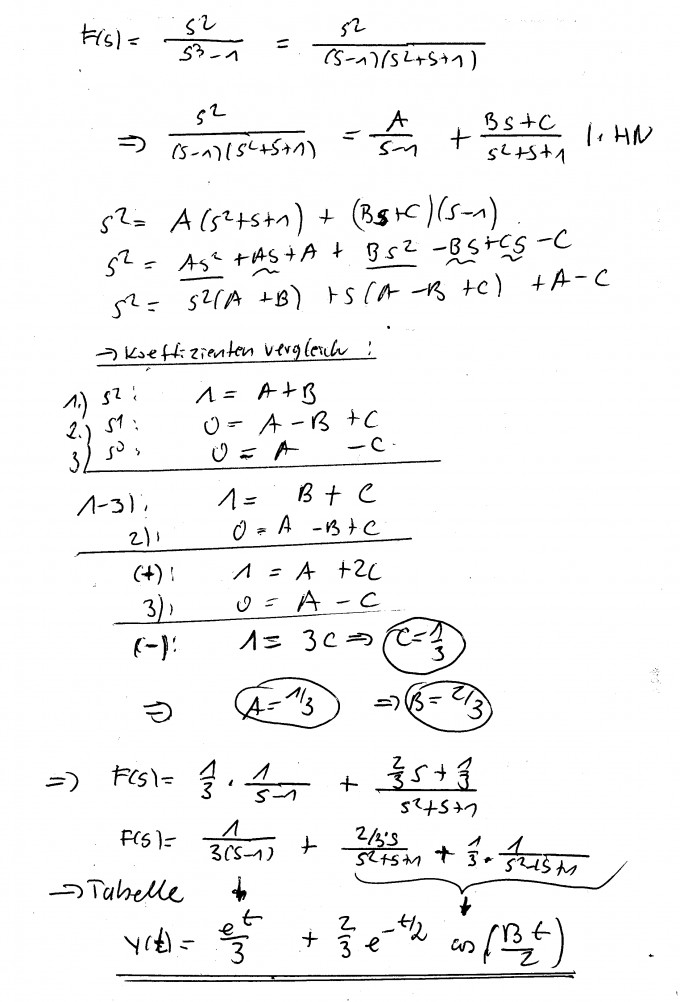 F(s) = s²/(s³-1) = s²/((s-1)(s²+s+1))
⇒ s²/((s-1)(s²+s+1)) = A/(s-1) + (Bs+C)/(s²+s+1) |· HN
s² = A(s²+s+1) + (Bs+C)(s-1)
s² = As² + As + A + Bs² - Bs + Cs - C
s² = s²(A + B) + s(A - B + C) + A - C
→ Koeffizienten vergleich :
1.) s²: 1 = A+B
2.) s¹: 0 = A - B + C
3) s⁰: 0 = A - C
1-3): 1 = B + C
2): 0 = A - B + C
(+): 1 = A + 2C
3): 0 = A - C
(-): 1 = 3C ⇒ C = 1/3
⇒ A = 1/3 ⇒ B = 2/3
⇒ F(s) = 1/3 · 1/(s-1) + (2/3 s + 1/3)/(s²+s+1)
F(s) = 1/(3(s-1)) + (2/3·s)/(s²+s+1) + 1/3 · 1/(s²+s+1)
→ Tabelle ↓ ↓
y(t) = e^t/3 + 2/3 e^(-t/2) cos(√3 t/2)